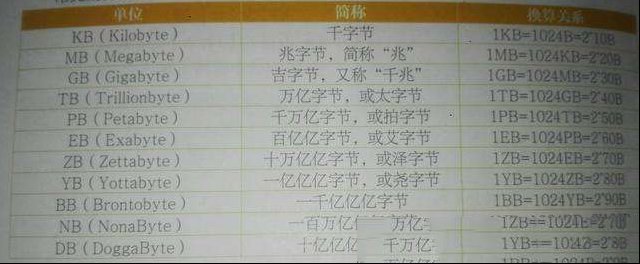 单位 简称 换算关系
KB ( Kilobyte ) 千字节 1KB=1024B=2^10B
MB ( Megabyte ) 兆字节，简称“兆” 1MB=1024KB=2^20B
GB ( Gigabyte ) 吉字节，又称“千兆” 1GB=1024MB=2^30B
TB ( Trillionbyte ) 万亿字节，或太字节 1TB=1024GB=2^40B
PB ( Petabyte ) 千万亿字节，或拍字节 1PB=1024TB=2^50B
EB ( Exabyte ) 百亿亿字节，或艾字节 1EB=1024PB=2^60B
ZB ( Zettabyte ) 十万亿亿字节，或泽字节 1ZB=1024EB=2^70B
YB ( Yottabyte ) 一亿亿亿字节，或尧字节 1YB=1024ZB=2^80B
BB ( Brontobyte ) 一千亿亿亿字节 1BB=1024YB=2^90B
NB ( NonaByte ) 一百万亿 万亿
DB ( DoggaByte ) 十亿亿 千万亿